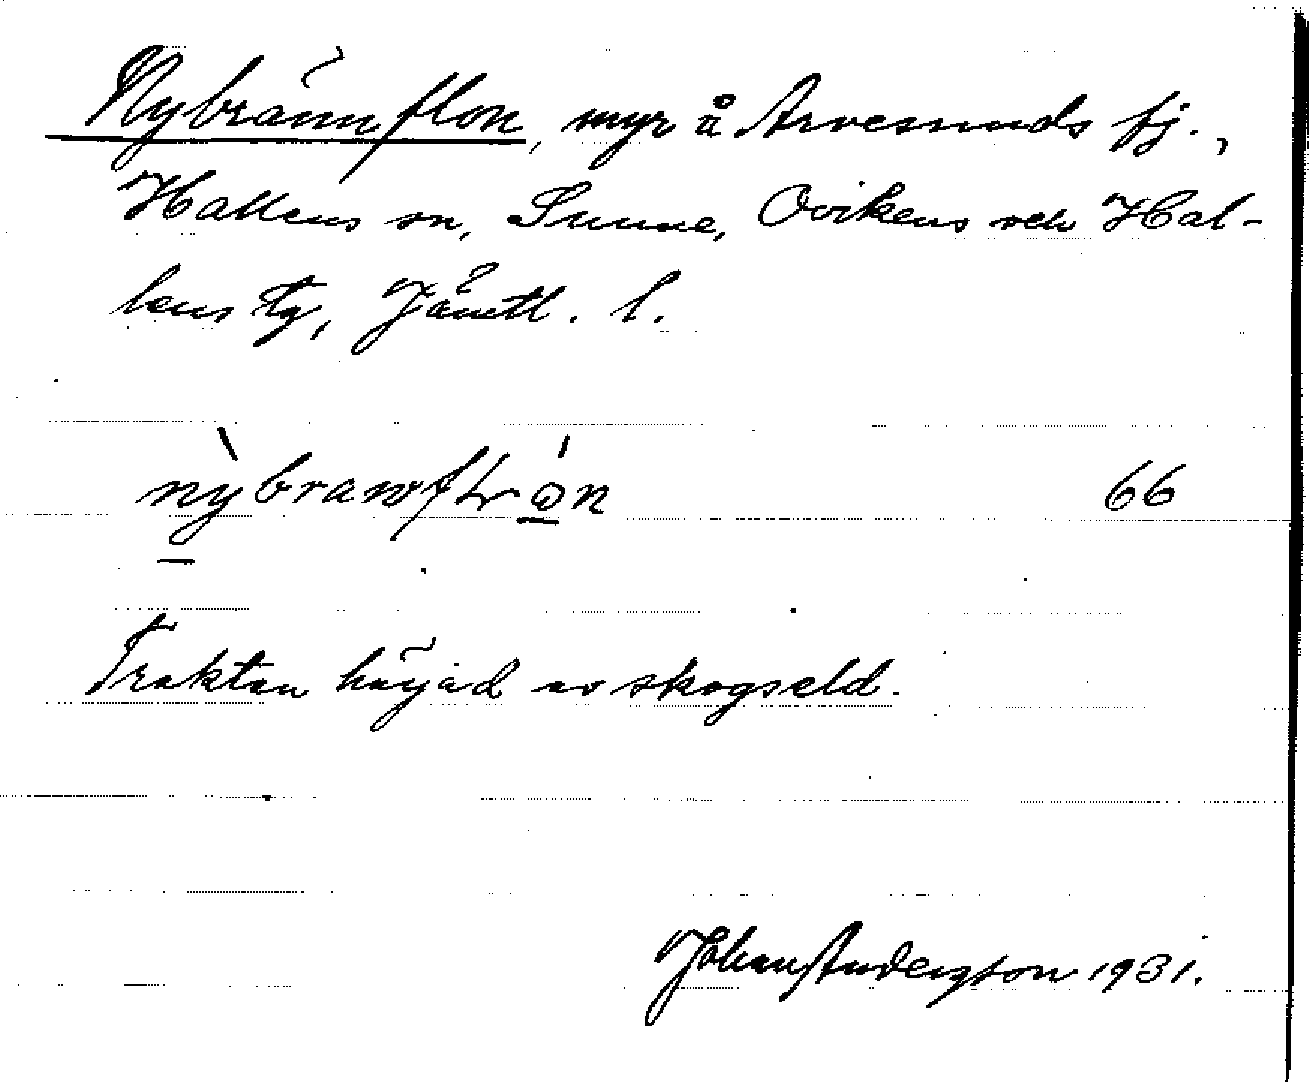 Nybrännflon, myr å Arvesunds fj.,
Hallens sn, Sunne, Ovikens och Hal-
lens tg, Jämtl. l.
nỳbrannflón 66
Trakten härjad av skogseld.
Johan Anderzson 1931.